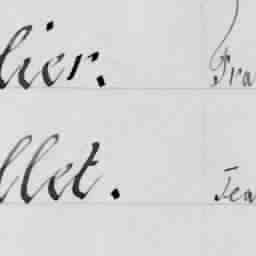 lier. Fra
llet. Jea